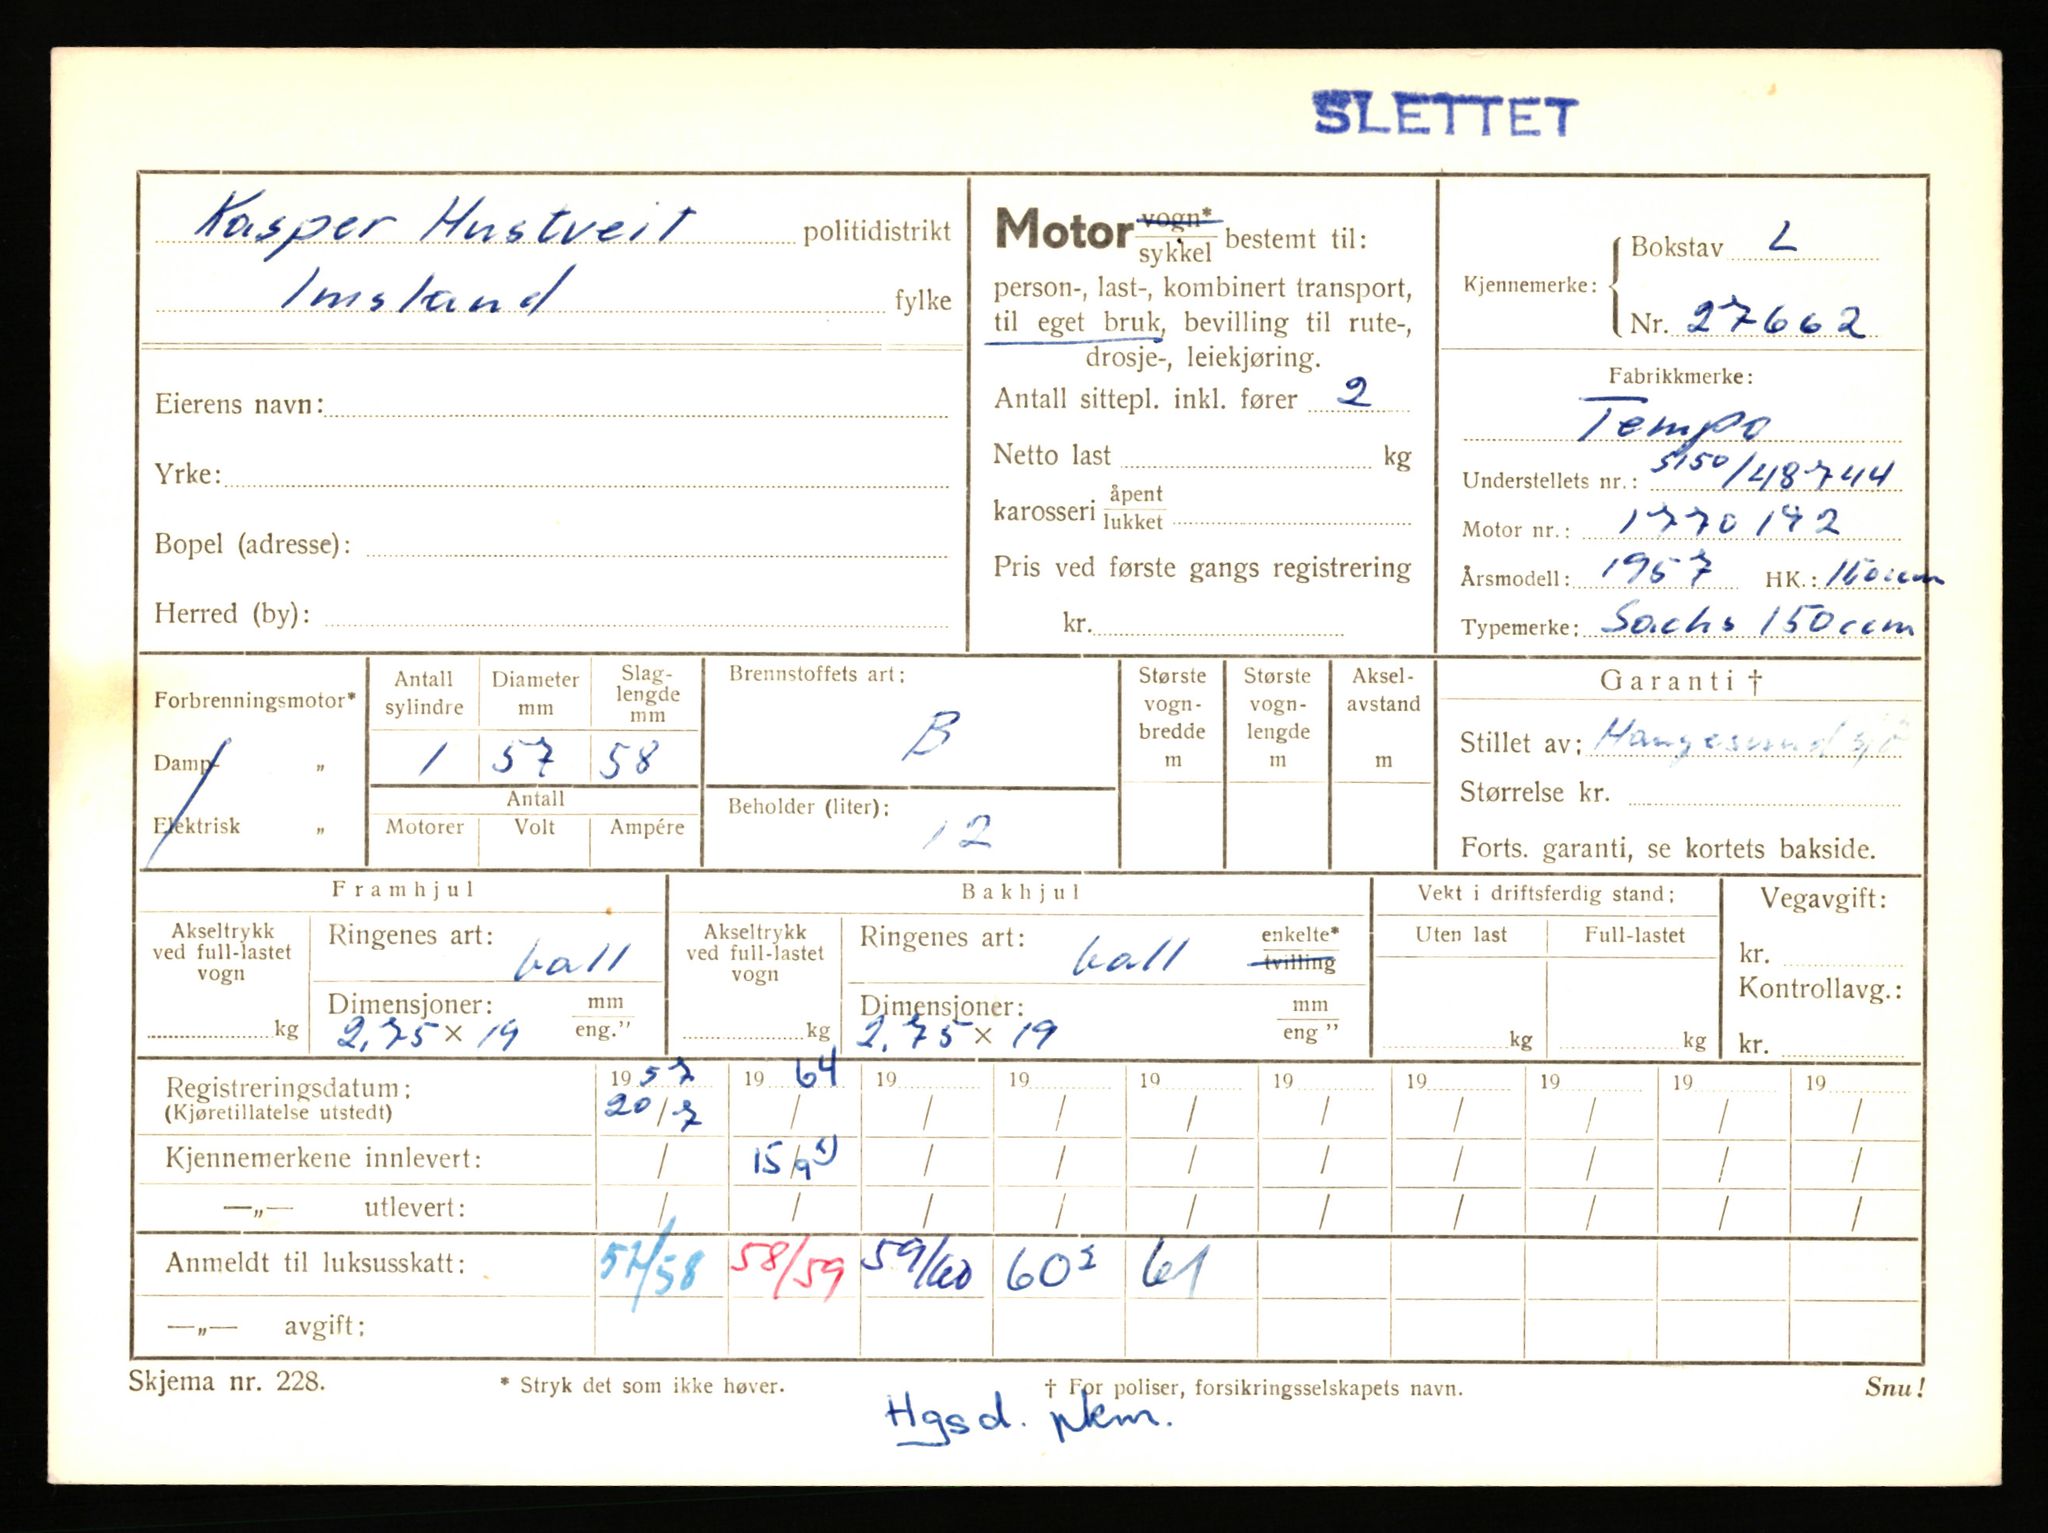 SLETTET
Kasper Hustveit politidistrikt
Imsland fylke
Eierens navn:
Yrke:
Bopel (adresse):
Herred (by):
Motor vogn* / sykkel bestemt til:
person-, last-, kombinert transport,
til eget bruk, bevilling til rute-,
drosje-, leiekjøring.
Antall sittepl. inkl. fører 2
Netto last kg
karosseri åpent / lukket
Pris ved første gangs registrering
kr.
Kjennemerke: Bokstav L
Nr. 27662
Fabrikkmerke:
Tempo
Understellets nr.: 5150/48744
Motor nr.: 1770142
Årsmodell: 1957 HK.: 150ccm
Typemerke: Sachs 150ccm
Forbrenningsmotor*
Damp- „
Elektrisk „
Antall sylindre
1
Diameter mm
57
Slag-lengde mm
58
Antall
Motorer Volt Ampére
Brennstoffets art:
B
Beholder (liter):
12
Største vogn-bredde m
Største vogn-lengde m
Aksel-avstand m
Garanti †
Stillet av: Haugesund sjø
Størrelse kr.
Forts. garanti, se kortets bakside.
Framhjul
Akseltrykk ved full-lastet vogn
kg
Ringenes art:
ball
Dimensjoner: mm / eng.”
2,75 × 19
Bakhjul
Akseltrykk ved full-lastet vogn
kg
Ringenes art: enkelte* / tvilling
ball
Dimensjoner: mm / eng ”
2,75 × 19
Vekt i driftsferdig stand:
Uten last Full-lastet
kg kg
Vegavgift:
kr.
Kontrollavg.:
kr.
Registreringsdatum: 1957 1964 19 19 19 19 19 19 19 19
(Kjøretillatelse utstedt) 20/7 / / / / / / / / /
Kjennemerkene innlevert: / 15/9 / / / / / / / /
—„— utlevert: / / / / / / / / / /
Anmeldt til luksusskatt: 57/58 58/59 59/60 60² 61
—„— avgift:
Skjema nr. 228. * Stryk det som ikke høver. † For poliser, forsikringsselskapets navn. Snu!
Hgsd. pkm.